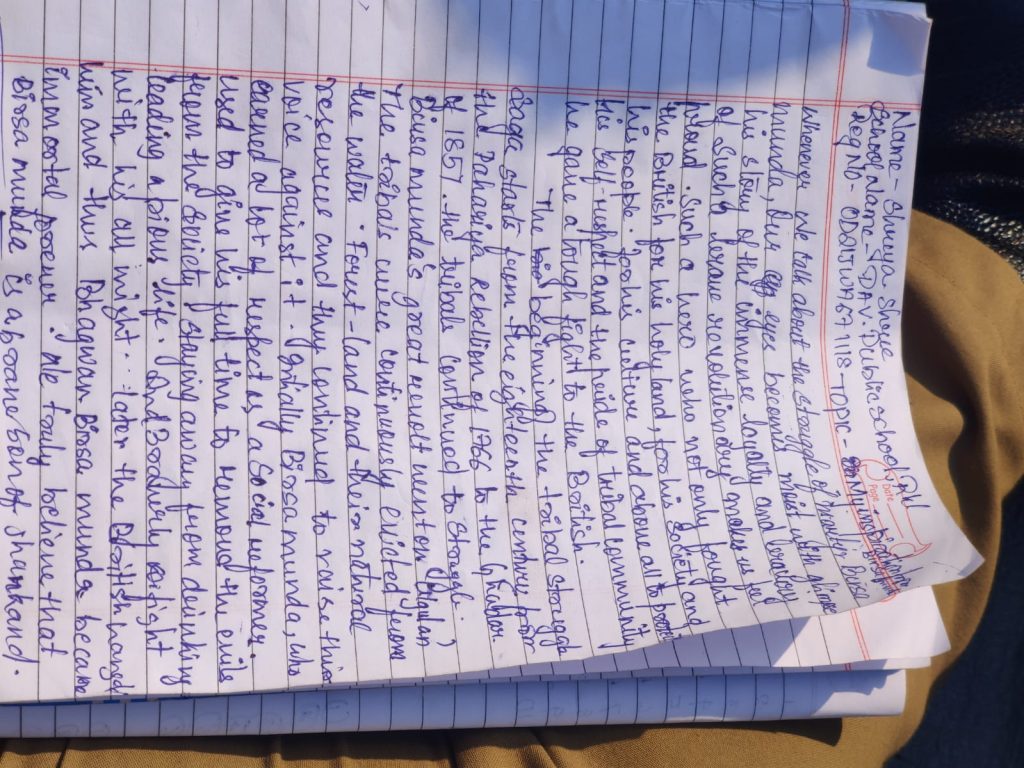 Name - Shreya Shree
School name - D.A.V. Public school
Reg No - OD01JWA67118 - Topic -
Date
Page
Whenever we talk about the struggle of
munda, Our eye become moist with
his story of
of such brave revolutionary makes us feel
proud. Such a hero who not only fought
the British for his holy land, for his society and
his people. for his culture and above all to
his self-respect and the pride of tribal community
he gave a tough fight to the British.
The beginning the tribal struggle
saga starts from the eighteenth century from
the Dahadigh rebellion of 1766 to the
of 1857. the tribals continued to struggle.
Birsa munda's great revolt went on
The tribals were continuously evicted from
the water. Forest - land and their natural
resource and they continued to raise their
voice against it. initially Birsa munda, who
earned a lot of respect as a Social reformer.
used to give his full time to remove the evils
from the society, staying away from drinking
leading a pious life. And Bravely fight
with his all might. later the British hanged
him and thus Bhagwan Birsa munda became
immortal forever. We truly believe that
Birsa munda is a brave son of Jharkhand.